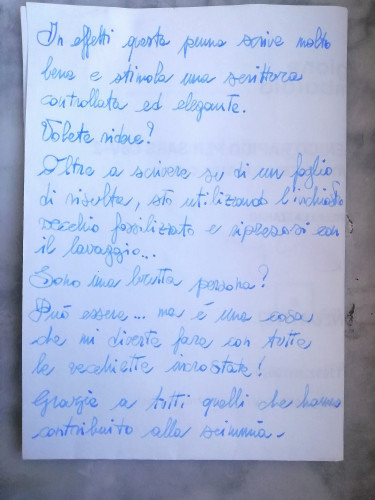 In effetti questa penna scrive molto
bene e stimola una scrittura
controllata ed elegante.
Volete ridere?
Oltre a scrivere su di un foglio
di risulta, sto utilizzando l'inchiostro
vecchio fossilizzato e ripresosi con
il lavaggio...
Sono una brutta persona?
Può essere... ma è una cosa
che mi diverte fare con tutte
le vecchiette incrostate!
Grazie a tutti quelli che hanno
contribuito alla scimmia.